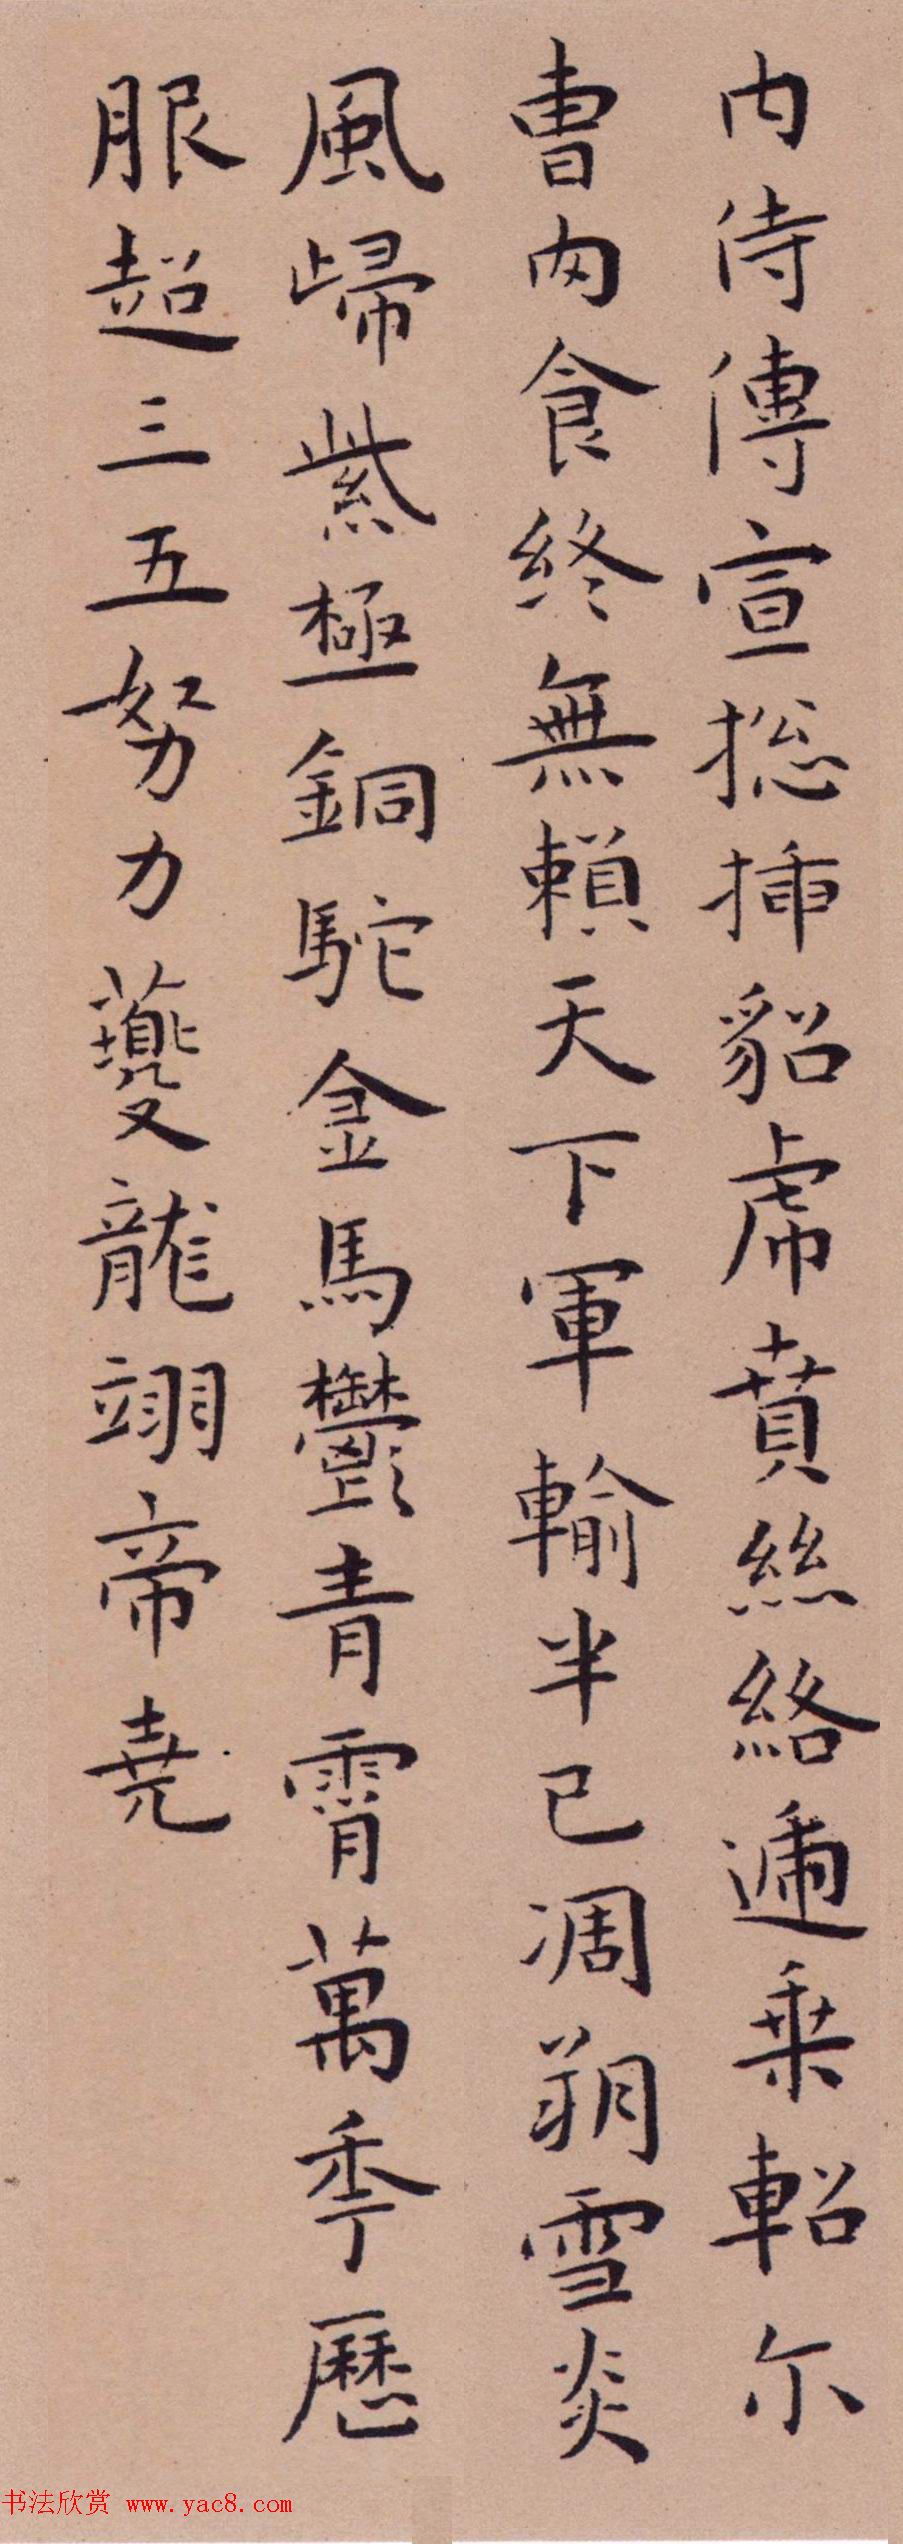 内侍傳宣摠揷貂虎賁絲絡遞乗軺尔
曹肉食終無賴天下軍輸半已凋朔雪炎
風歸紫極銅駝金馬鬱青霄萬秊歷
服超三五努力夔龍翊帝堯
书法欣赏 www.yac8.com